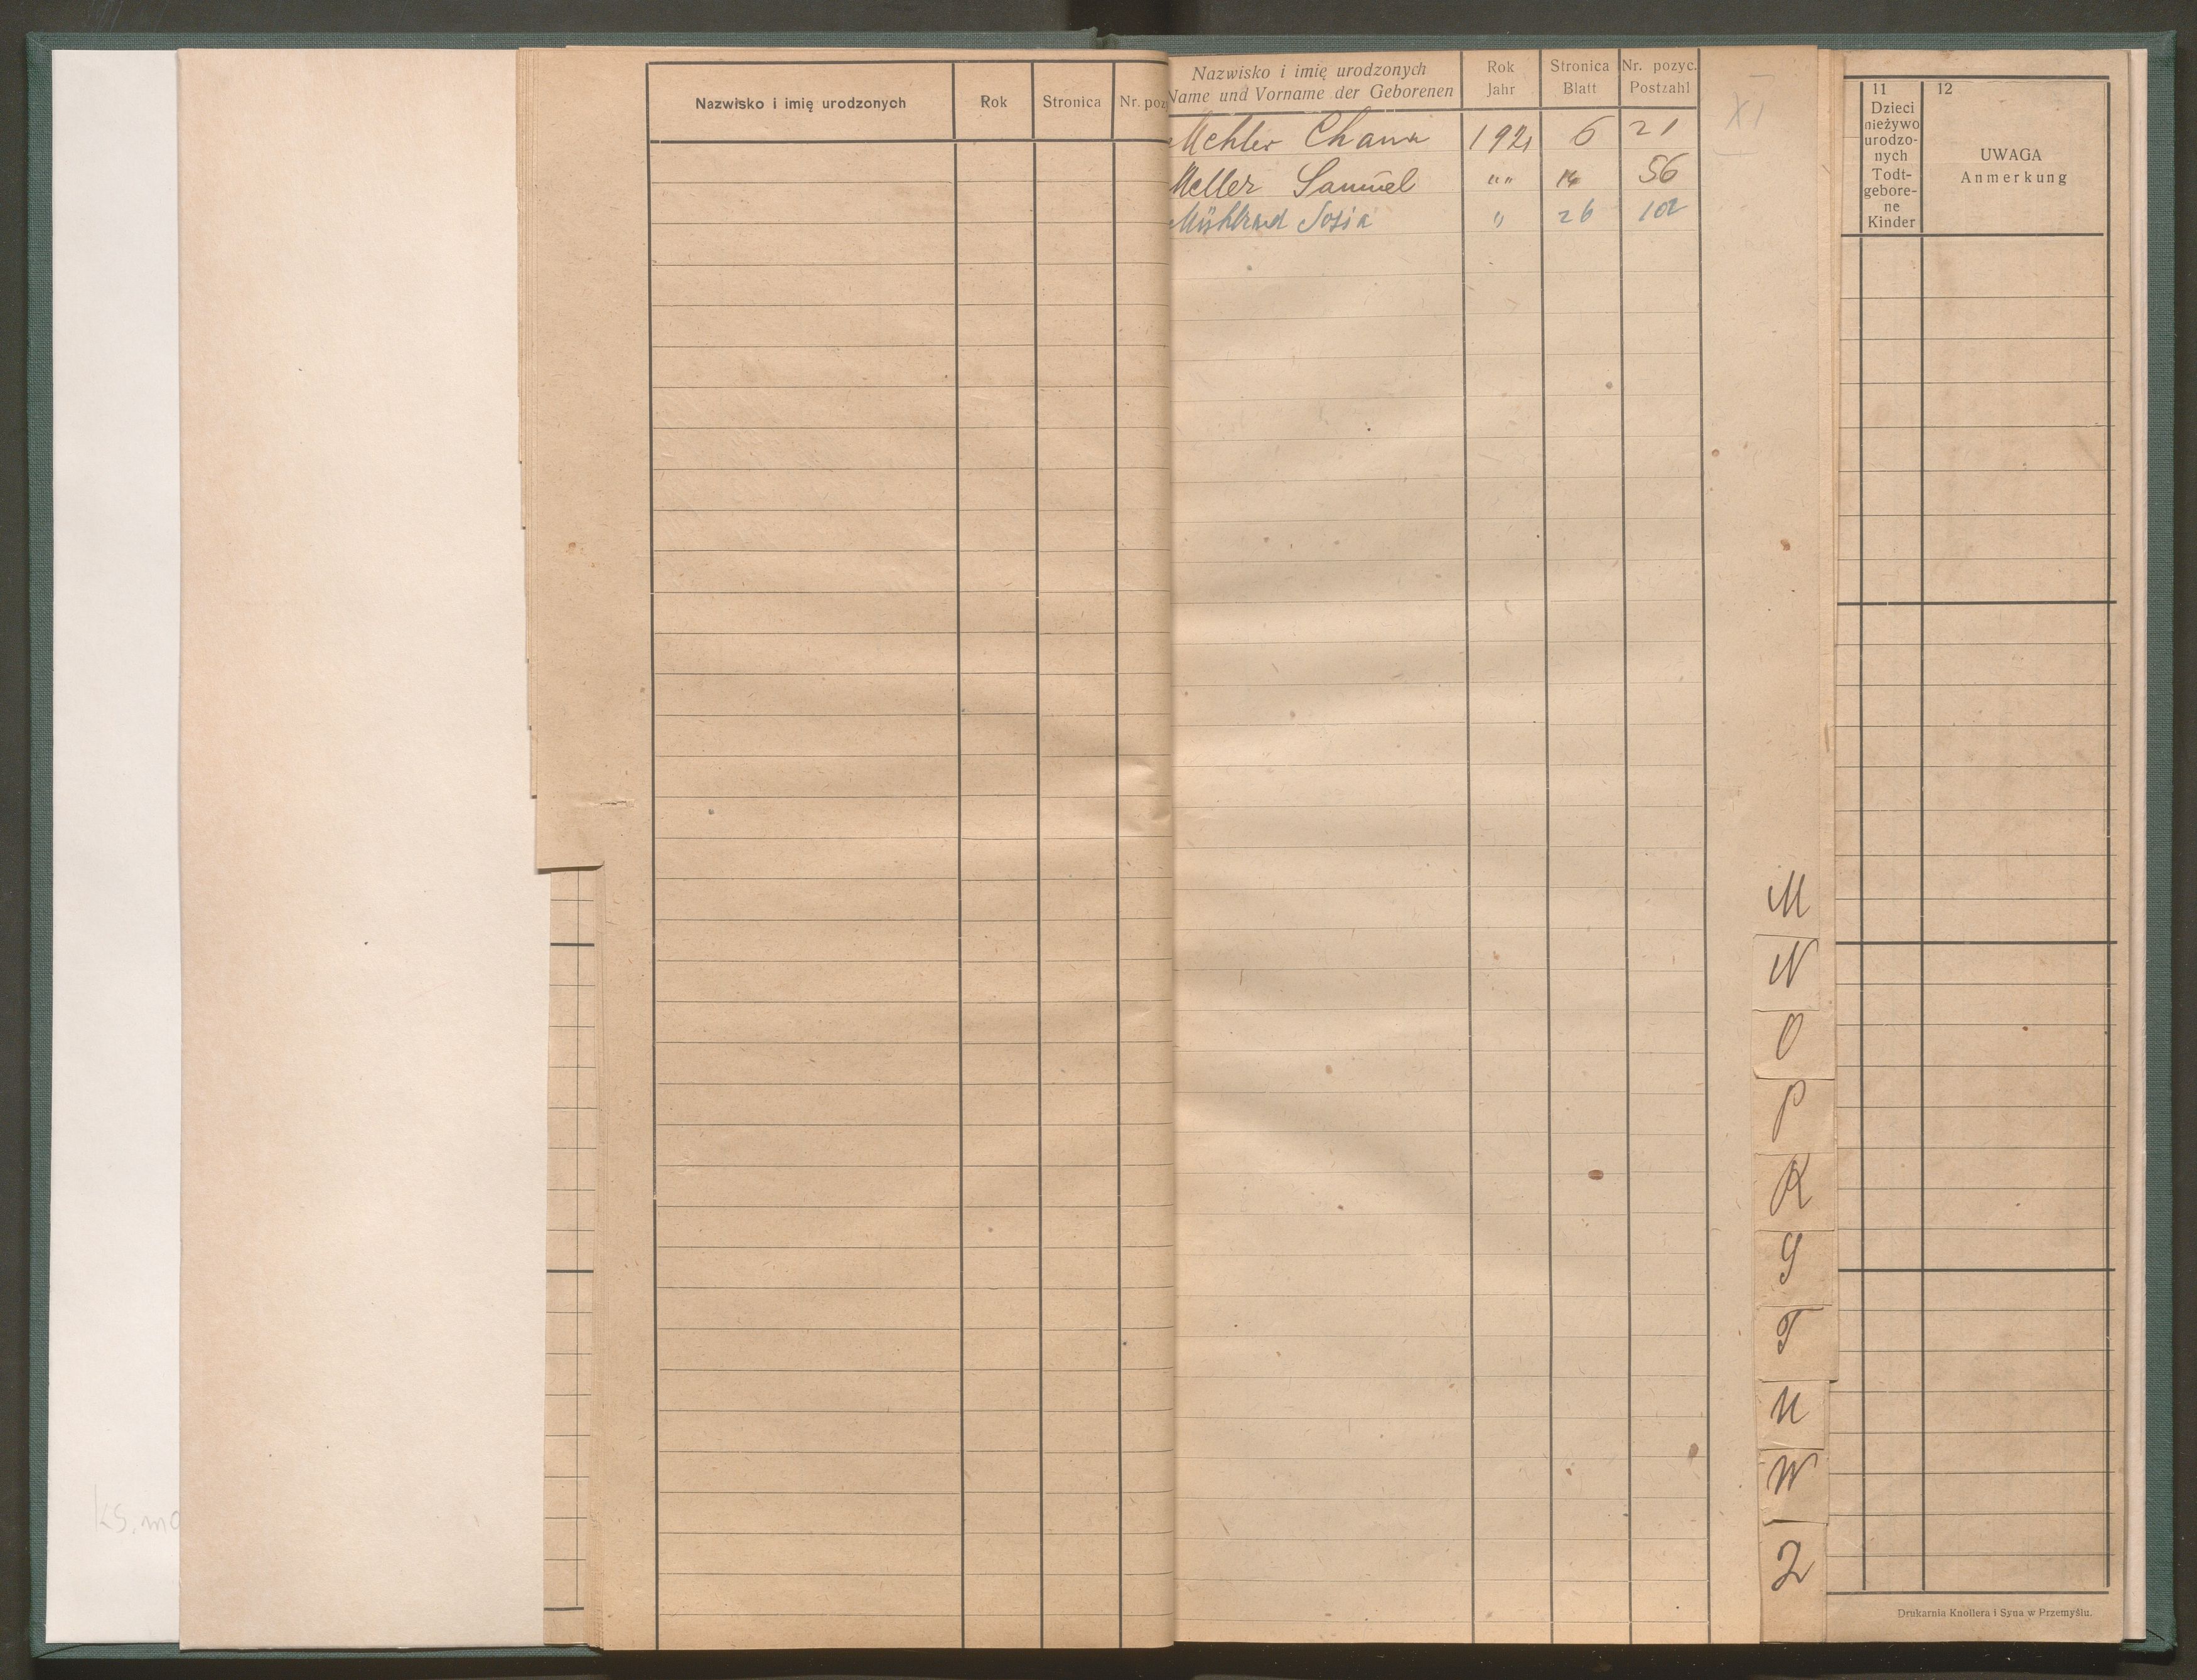 Nazwisko i imię urodzonych Rok Stronica Nr. poz
Nazwisko i imię urodzonych Rok Stronica Nr. pozyc.
Name und Vorname der Geborenen Jahr Blatt Postzahl
Mehler Chana 1921 6 21
Meller Samuel "" 14 56
Mühlrad Sosia " 26 102
XI
M
N
O
P
R
S
T
U
W
Z
11
Dzieci
nieżywo
urodzo-
nych
Todt-
gebore-
ne
Kinder
12
UWAGA
Anmerkung
ks. mo
Drukarnia Knollera i Syna w Przemyślu.